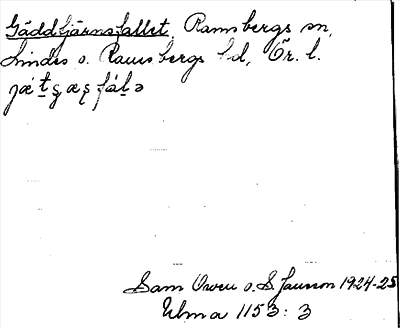 Gäddtjärnsfallet, Ramsbergs sn,
Lindes o. Ramsbergs hd, Ör. l.
Sam Owen o. S. Janson 1924-25
Ulma 1153: 3